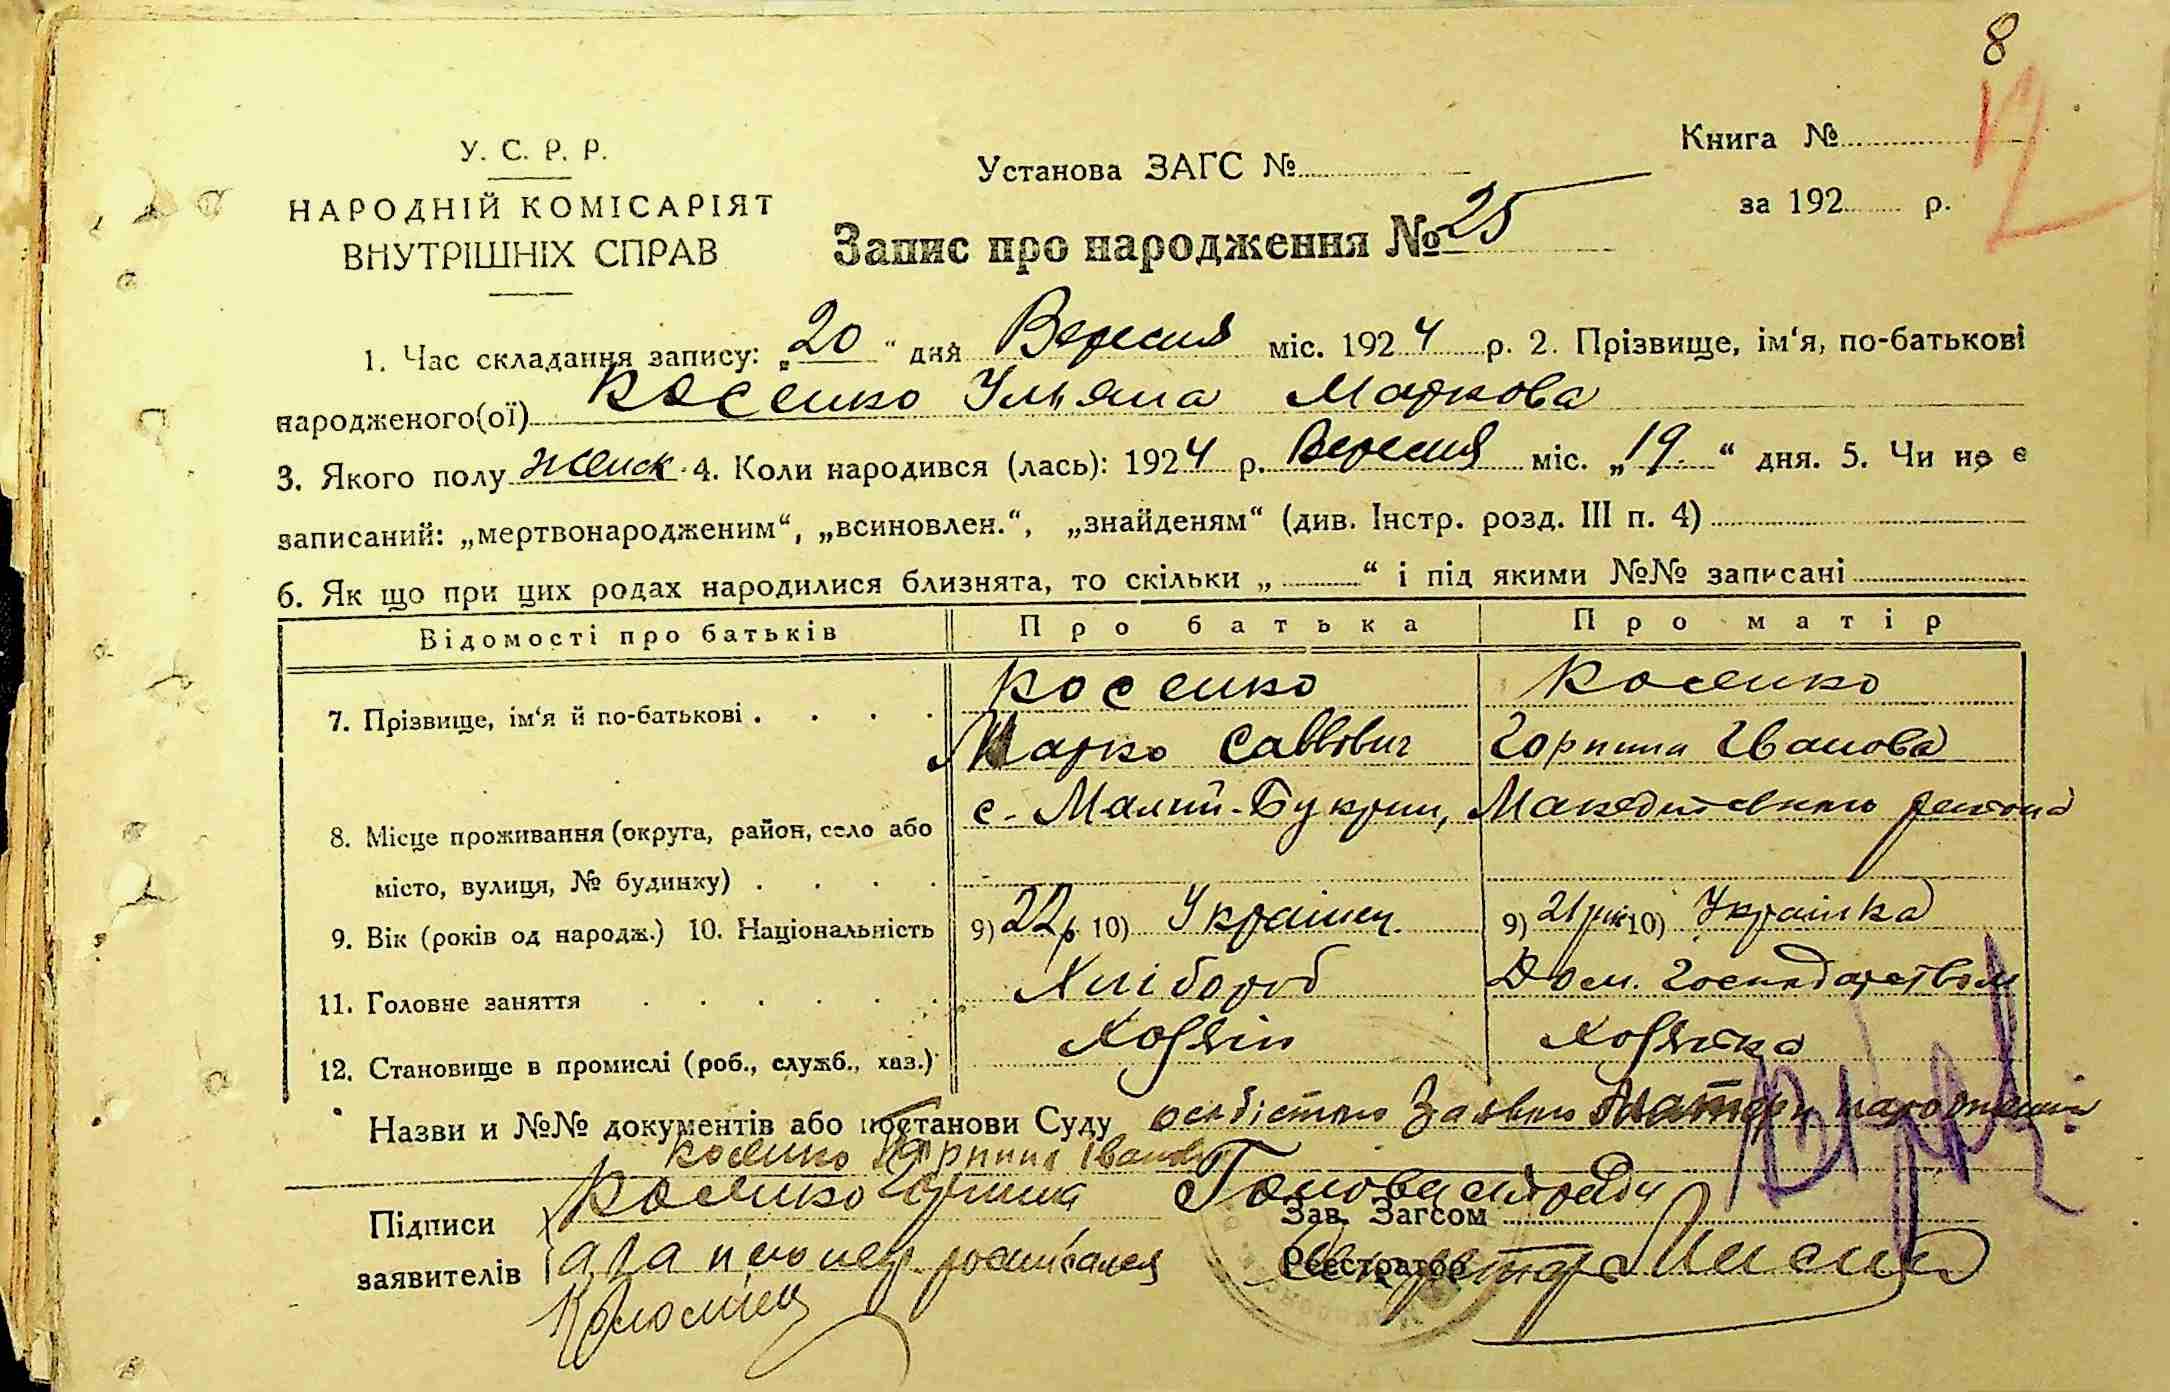 8
12
У. С. Р. Р.
НАРОДНІЙ КОМІСАРІЯТ
ВНУТРІШНІХ СПРАВ
Установа ЗАГС №
Книга №
за 192 р.
Запис про народження № 25
1. Час складання запису: „20“ дня Вересня міс. 1924 р. 2. Прізвище, ім‘я, по-батькові
народженого(ої) Косенко Ульяна Маркова
3. Якого полу женск. 4. Коли народився (лась): 1924 р. Вересня міс. „19.“ дня. 5. Чи не є
записаний: „мертвонародженим“, „всиновлен.“, „знайденям“ (див. Інстр. розд. III п. 4)
6. Як що при цих родах народилися близнята, то скільки „ “ і під якими №№ записані
Відомості про батьків Про батька Про матір
7. Прізвище, ім‘я й по-батькові . . . . Косенко Косенко
Марко Саввович Горпина Іванова
8. Місце проживання (округа, район, село або с. Малий-Букрин, Македонського района
місто, вулиця, № будинку) . . . .
9. Вік (років од народж.) 10. Національність 9) 22р 10) Українец. 9) 21 рік 10) Українка
11. Головне заняття . . . . . . Хлібороб Дом. Господарством
12. Становище в промислі (роб., служб., хаз.) Хозяін Хозяйка
Назви и №№ документів або постанови Суду особістою Заявою Матери народження
Косенко Горпини Іванов
Підписи Косенко Горпина Голова сільради
Зав. Загсом
заявителів а за неграмотну росписался
Реєстратор Секретар
Коломіец